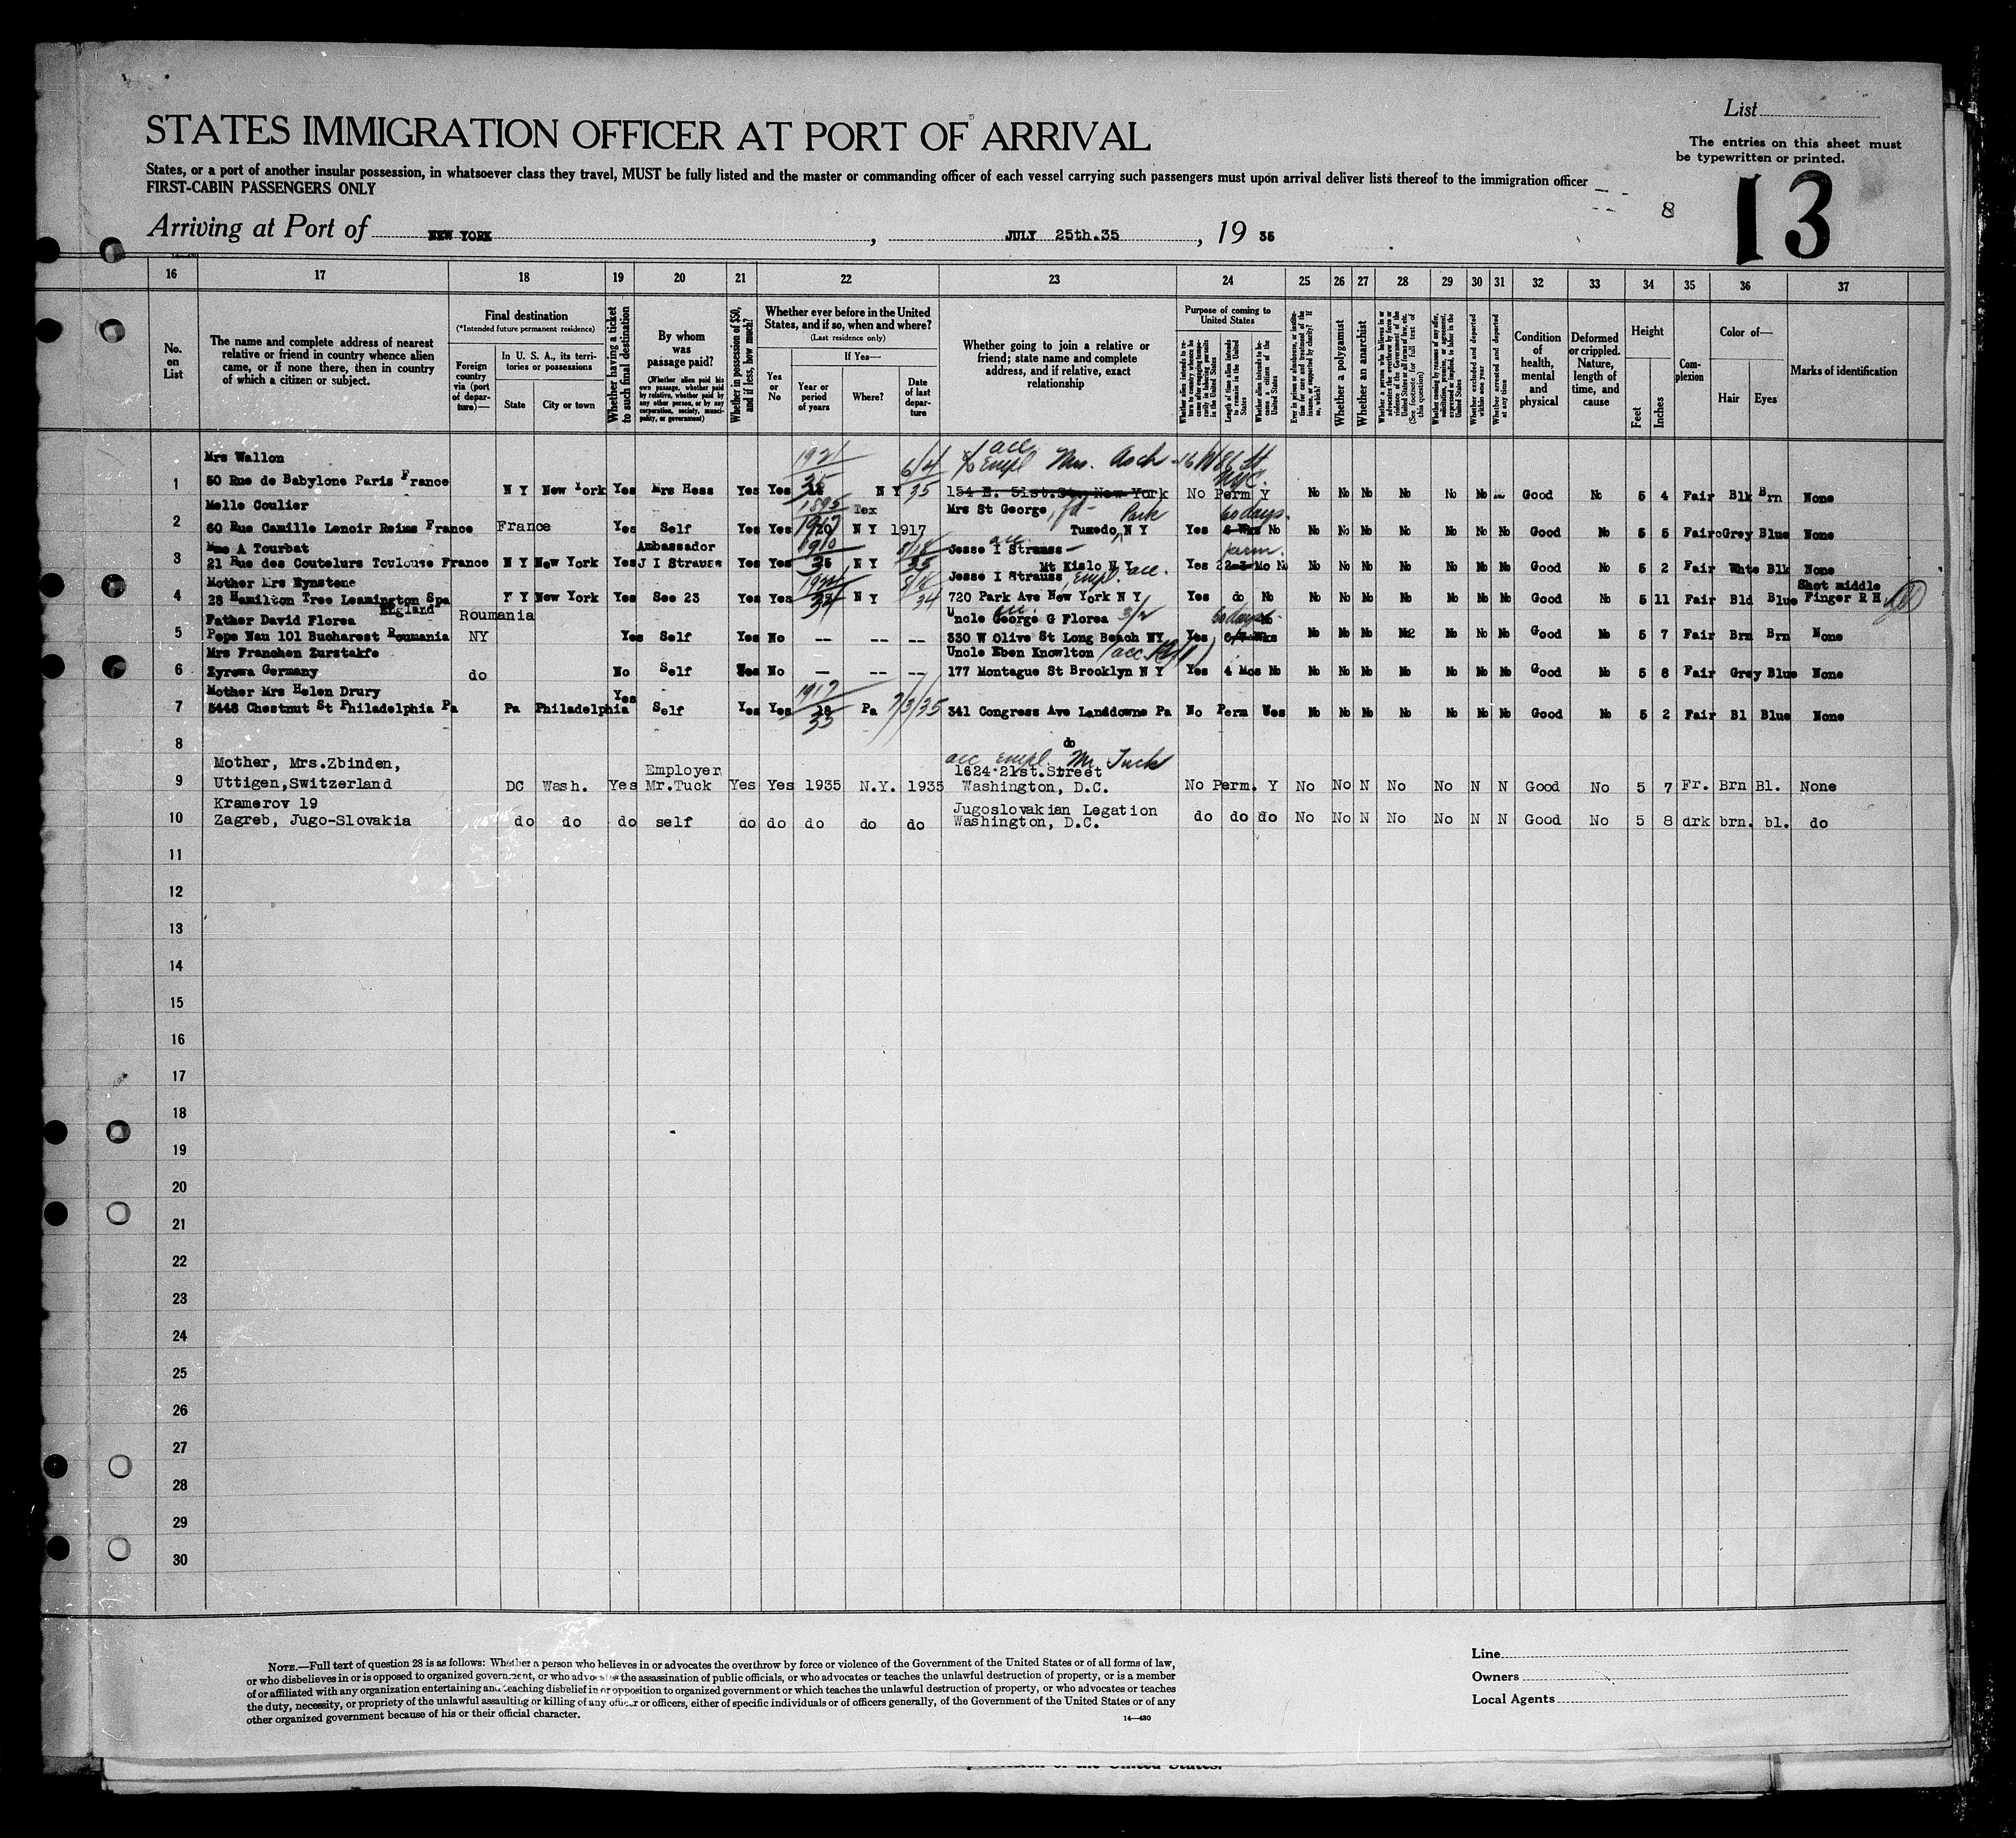 List
STATES IMMIGRATION OFFICER AT PORT OF ARRIVAL
The entries on this sheet must
be typewritten or printed.
States, or a port of another insular possession, in whatsoever class they travel, MUST be fully listed and the master or commanding officer of each vessel carrying such passengers must upon arrival deliver lists thereof to the immigration officer
FIRST-CABIN PASSENGERS ONLY
8
13
Arriving at Port of NEW YORK, JULY 25th.35, 19 35
16 17 18 19 20 21 22 23 24 25 26 27 28 29 30 31 32 33 34 35 36 37
No. on List
The name and complete address of nearest relative or friend in country whence alien came, or if none there, then in country of which a citizen or subject.
Final destination
(*Intended future permanent residence)
Foreign country via (port of departure)—
In U. S. A., its territories or possessions
State
City or town
Whether having a ticket to such final destination
By whom was passage paid?
(Whether alien paid his own passage, whether paid by relative, whether paid by any other person, or by any corporation, society, municipality, or government)
Whether in possession of $50, and if less, how much?
Whether ever before in the United States, and if so, when and where?
(Last residence only)
Yes or No
If Yes—
Year or period of years
Where?
Date of last departure
Whether going to join a relative or friend; state name and complete address, and if relative, exact relationship
Purpose of coming to United States
Length of time alien intends to remain in the United States
Whether alien intends to become a citizen of the United States
Whether a polygamist
Whether an anarchist
Whether arrested and deported at any time
Condition of health, mental and physical
Deformed or crippled. Nature, length of time, and cause
Height
Feet
Inches
Complexion
Color of—
Hair
Eyes
Marks of identification
Mrs Wallon 1921 acc
6/4 Empl Mrs. Asch - 16 W 86 St
50 Rue de Babylone Paris France 35 NYC.
1 N Y New York Yes Mrs Hess Yes Yes N Y 35 154 E. 51st.St. New York No Perm Y No No No No No No Good No 5 4 Fair Blk Brn None
Melle Coulier 1895 Tex Mrs St George, Park 60 days.
2 60 Rue Camille Lenoir Reims France France Yes Self Yes Yes N Y 1917 Tuxedo N Y Yes No No No No No No No No Good No 5 5 Fair Grey Blue None
Mme A Tourbat Ambassador 1910 Jesse I Strauss - acc perm.
3 21 Rue des Coutelurs Toulouse France N Y New York Yes J I Strauss Yes Yes 35 N Y 35 Mt Kislo N Y Yes No No No No No No No Good No 5 2 Fair Whte Blk None
Mother Mrs Eynstone Jesse I Strauss, empl. acc. Shot middle
4 28 Hamilton Tree Leamington Spa N Y New York Yes See 23 Yes Yes 34 N Y 34 720 Park Ave New York N Y Yes do No No No No No No No No Good No 5 11 Fair Bld Blue Finger R H
England
Father David Florea Roumania Uncle George G Florea 3/2 60 days
5 Pope Nan 101 Bucharest Roumania NY Yes Self Yes No — -- -- 330 W Olive St Long Beach NY Yes No No No No No No Good No 5 7 Fair Brn Brn None
Mrs Franchen Zurstakfe Uncle Eben Knowlton
6 Zyrewa Germany do No Self Yes No — -- -- 177 Montague St Brooklyn N Y Yes 4 Mos No No No No No No No No Good No 5 8 Fair Grey Blue None
Mother Mrs Helen Drury Yes 1917
7 5448 Chestnut St Philadelphia Pa Pa Philadelphia Self Yes Yes Pa 7/3/35 341 Congress Ave Lansdowne Pa No Perm Yes No No No No No No No Good No 5 2 Fair Bl Blue None
33
8 do
Mother, Mrs.Zbinden, acc empl Mr. Tuck
Employer 1624 21st.Street
9 Uttigen,Switzerland DC Wash. Yes Mr.Tuck Yes Yes 1935 N.Y. 1935 Washington, D.C. No Perm. Y No No N No No N N Good No 5 7 Fr. Brn Bl. None
Kramerov 19 Jugoslovakian Legation
10 Zagreb, Jugo-Slovakia do do do self do do do do do Washington, D.C. do do do No No N No No N N Good No 5 8 drk brn. bl. do
11
12
13
14
15
16
17
18
19
20
21
22
23
24
25
26
27
28
29
30
NOTE.—Full text of question 28 is as follows: Whether a person who believes in or advocates the overthrow by force or violence of the Government of the United States or of all forms of law,
or who disbelieves in or is opposed to organized government, or who advocates the assassination of public officials, or who advocates or teaches the unlawful destruction of property, or is a member
of or affiliated with any organization entertaining and teaching disbelief in or opposition to organized government or which teaches the unlawful destruction of property, or who advocates or teaches
the duty, necessity, or propriety of the unlawful assaulting or killing of any officer or officers, either of specific individuals or of officers generally, of the Government of the United States or of any
other organized government because of his or their official character.
14—430
Line
Owners
Local Agents
of the United States.